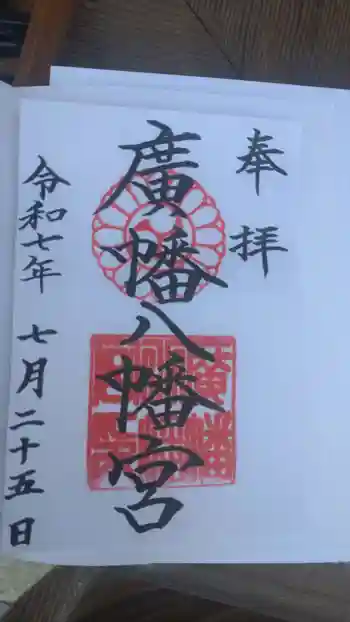 奉拝
廣幡八幡宮
令和七年 七月二十五日